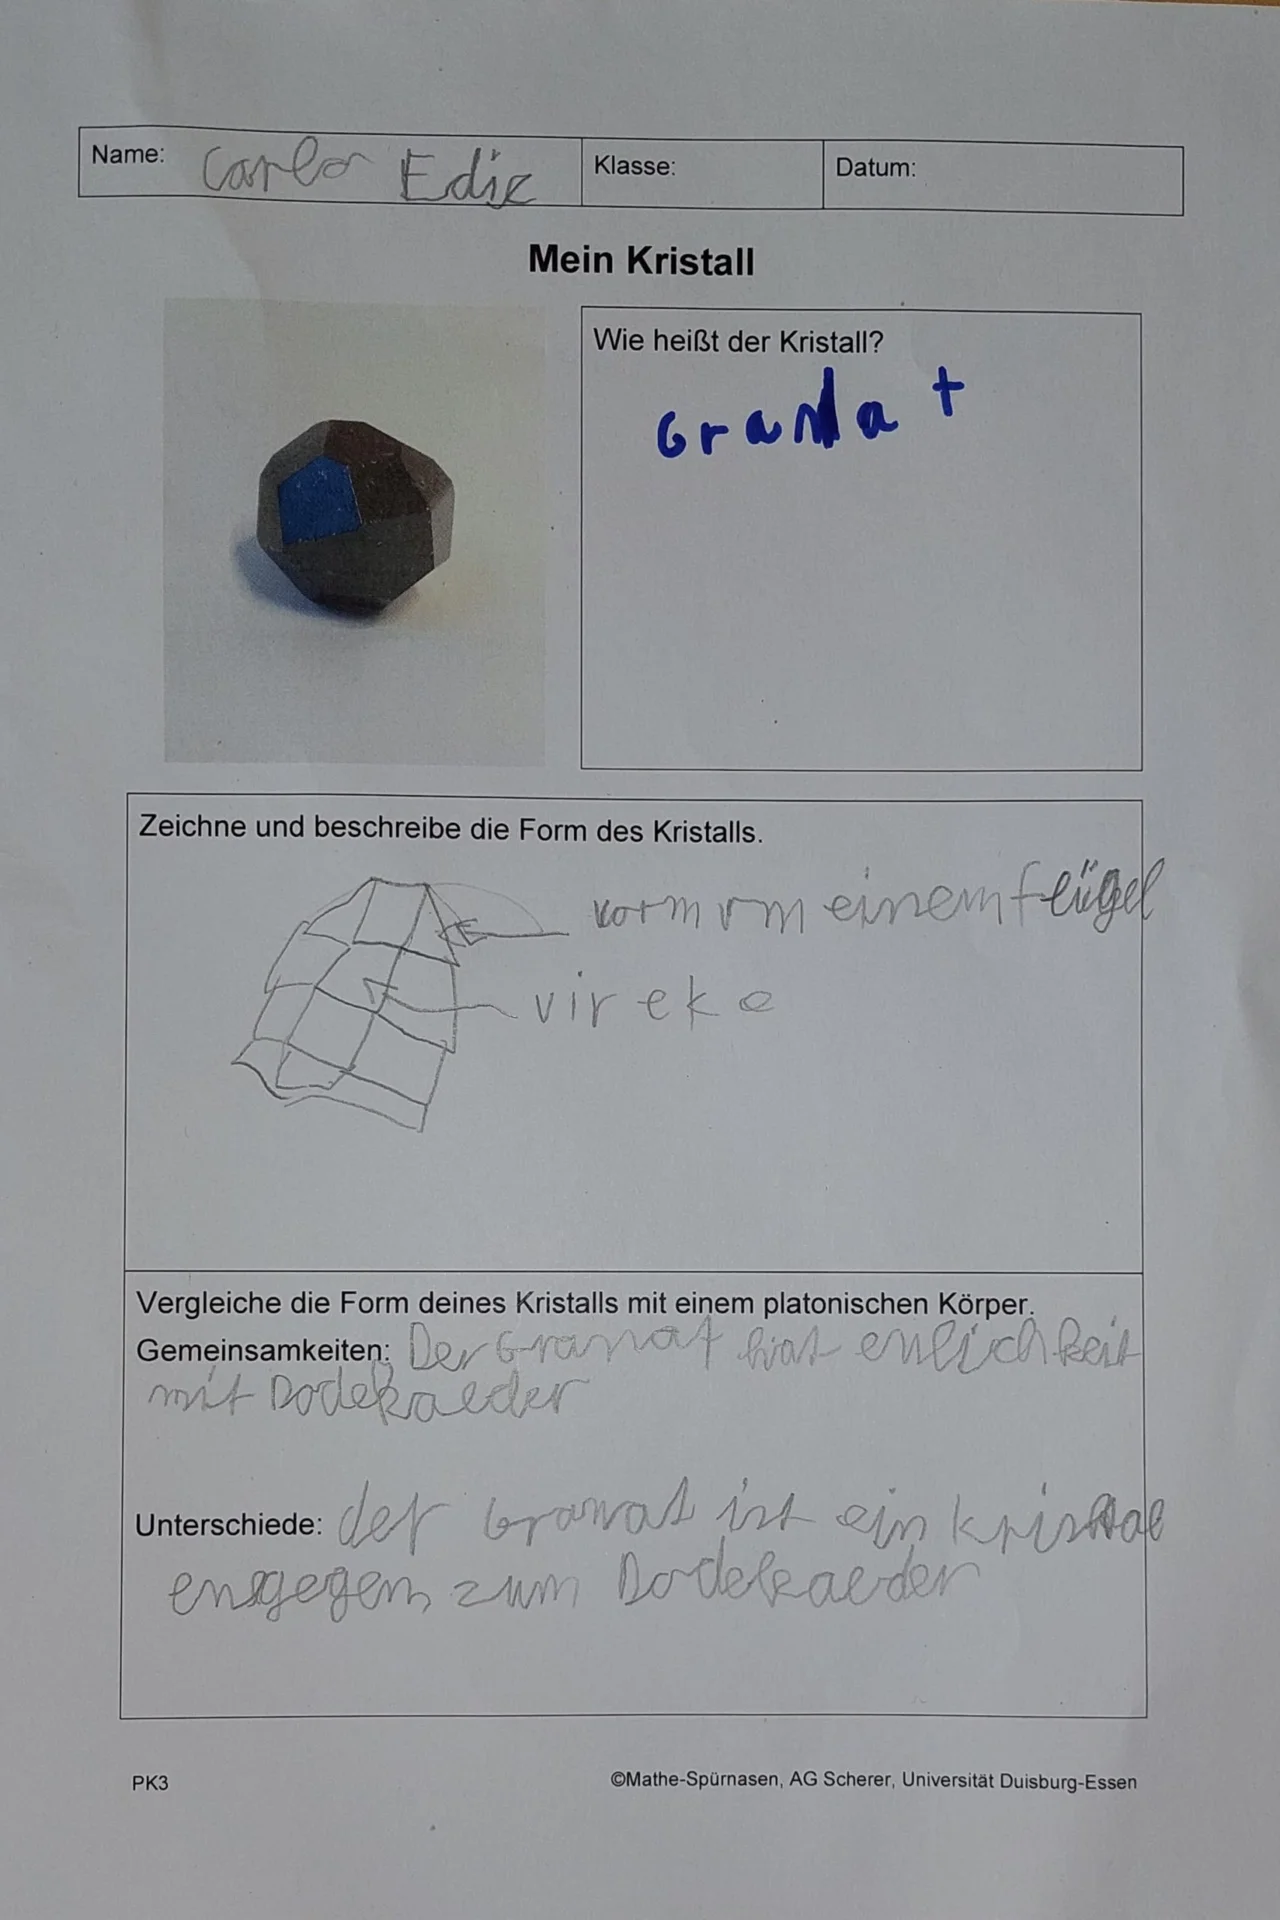 Name: Carlo Edis
Klasse:
Datum:
Mein Kristall
Wie heißt der Kristall?
Granat
Zeichne und beschreibe die Form des Kristalls.
vorm vm einem flügel
vireke
Vergleiche die Form deines Kristalls mit einem platonischen Körper.
Gemeinsamkeiten: Der Granat hat enlichkeit
mit Dodekaeder
Unterschiede: der Granat ist ein kristal
engegen zum Dodekaeder
PK3
©Mathe-Spürnasen, AG Scherer, Universität Duisburg-Essen